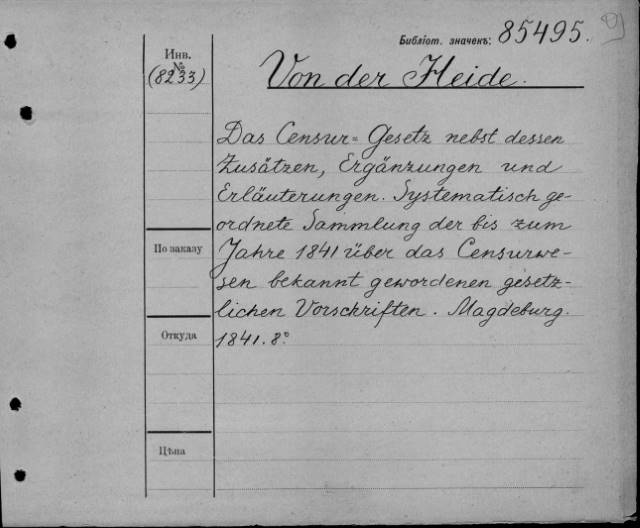 Библіот. значекъ: 85495.
Инв.
№
(8233)
Von der Heide.
Das Censur= Gesetz nebst dessen
Zusätzen, Ergänzungen und
Erläuterungen. Systematisch ge-
ordnete Sammlung der bis zum
По заказу
Jahre 1841 über das Censurwe-
sen bekannt gewordenen gesetz-
lichen Vorschriften. Magdeburg.
Откуда
1841. 8°
Цѣна